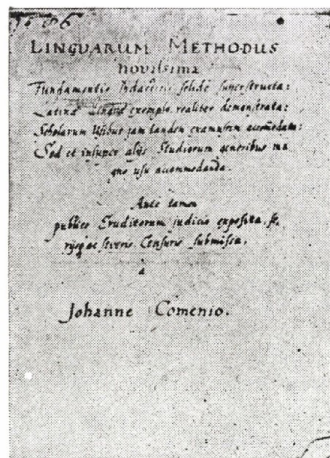 LINGUARUM METHODUS
novissima
Fundamentis Didacticis solide superstructa:
Latinæ Linguæ exemplo realiter demonstrata:
Scholarum usibus jam tandem examussim accomodata:
Sed et insuper aliis Studiorum generibus ma
gno usu accommodanda.
Ante tamen
publico Eruditorum judicio exposita, se
rijsq; ac severis Censuris submissa,
a
Johanne Comenio.